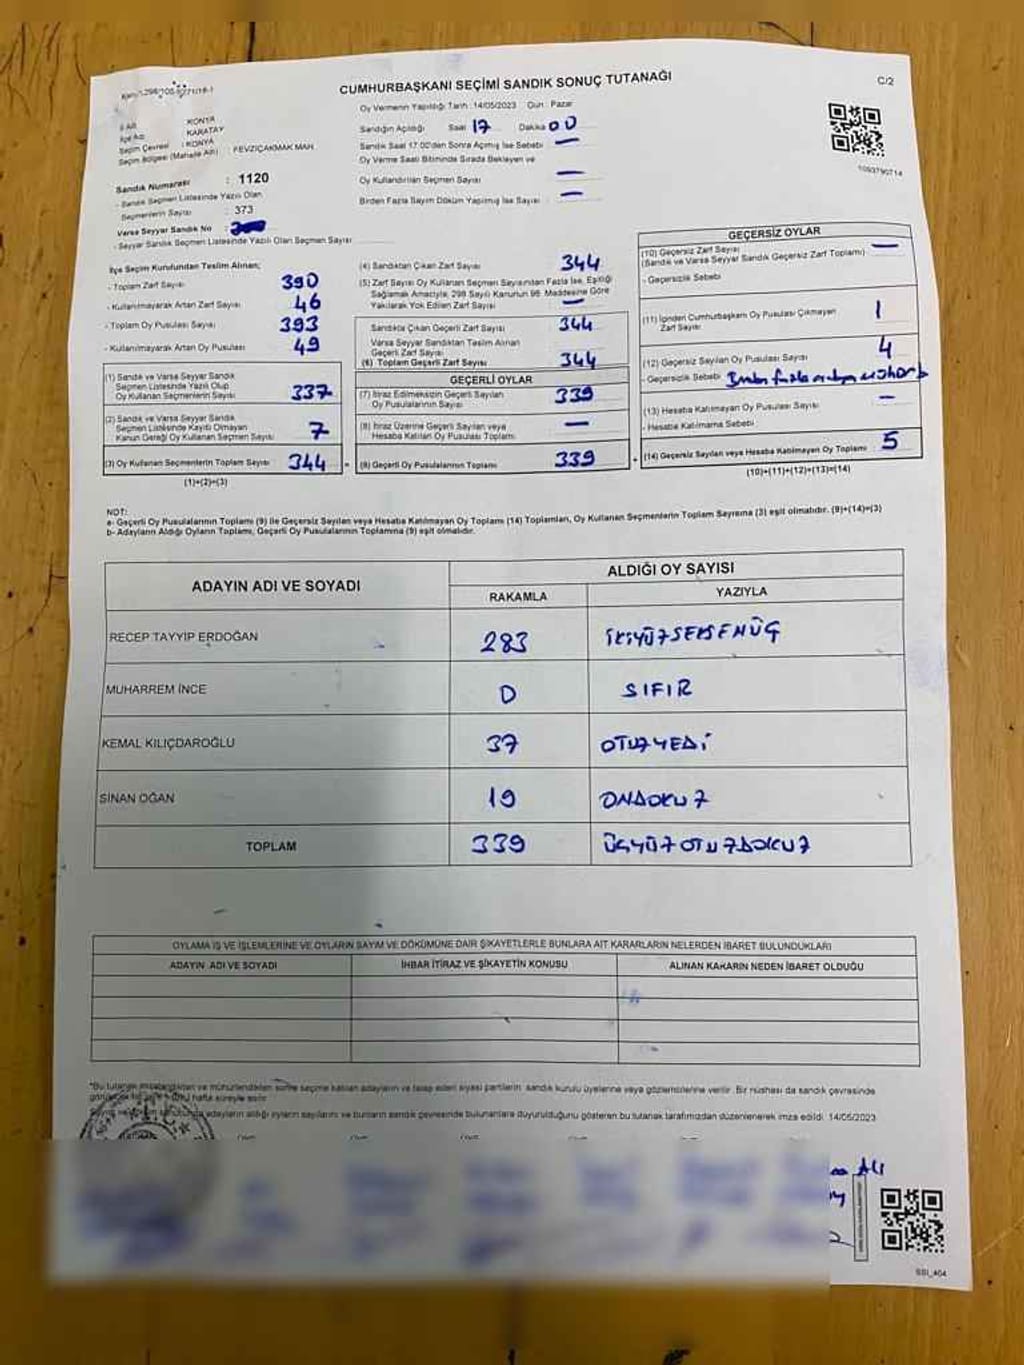 CUMHURBAŞKANI SEÇİMİ SANDIK SONUÇ TUTANAĞI
C/2
Oy Vermenin Yapıldığı Tarih : 14/05/2023 Gün : Pazar
Sandığın Açıldığı Saat 17 Dakika 00
Sandık Saat 17.00'den Sonra Açılmış İse Sebebi : —
Oy Verme Saati Bitiminde Sırada Bekleyen ve
Oy Kullandırılan Seçmen Sayısı —
Birden Fazla Sayım Döküm Yapılmış İse Sayısı : —
İl Adı : KONYA
İlçe Adı : KARATAY
Seçim Çevresi : KONYA
Seçim Bölgesi (Mahalle Adı) : FEVZİÇAKMAK MAH
Sandık Numarası : 1120
- Sandık Seçmen Listesinde Yazılı Olan
Seçmenlerin Sayısı : 373
Varsa Seyyar Sandık No :
- Seyyar Sandık Seçmen Listesinde Yazılı Olan Seçmen Sayısı
1093790714
İlçe Seçim Kurulundan Teslim Alınan;
- Toplam Zarf Sayısı : 390
- Kullanılmayarak Artan Zarf Sayısı : 46
- Toplam Oy Pusulası Sayısı : 393
- Kullanılmayarak Artan Oy Pusulası : 49
(1) Sandık ve Varsa Seyyar Sandık
Seçmen Listesinde Yazılı Olup
Oy Kullanan Seçmenlerin Sayısı : 337
(2) Sandık ve Varsa Seyyar Sandık
Seçmen Listesinde Kayıtlı Olmayan
Kanun Gereği Oy Kullanan Seçmen Sayısı : 7
(3) Oy Kullanan Seçmenlerin Toplam Sayısı : 344
(1)+(2)=(3)
(4) Sandıktan Çıkan Zarf Sayısı : 344
(5) Zarf Sayısı Oy Kullanan Seçmen Sayısından Fazla İse, Eşitliği
Sağlamak Amacıyla, 298 Sayılı Kanunun 98. Maddesine Göre
Yakılarak Yok Edilen Zarf Sayısı : —
Sandıkta Çıkan Geçerli Zarf Sayısı : 344
Varsa Seyyar Sandıktan Teslim Alınan
Geçerli Zarf Sayısı
(6) Toplam Geçerli Zarf Sayısı : 344
GEÇERLİ OYLAR
(7) İtiraz Edilmeksizin Geçerli Sayılan
Oy Pusulalarının Sayısı : 339
(8) İtiraz Üzerine Geçerli Sayılan veya
Hesaba Katılan Oy Pusulası Toplamı : —
(9) Geçerli Oy Pusulalarının Toplamı : 339
GEÇERSİZ OYLAR
(10) Geçersiz Zarf Sayısı : —
(Sandık ve Varsa Seyyar Sandık Geçersiz Zarf Toplamı)
- Geçersizlik Sebebi
(11) İçinden Cumhurbaşkanı Oy Pusulası Çıkmayan
Zarf Sayısı : 1
(12) Geçersiz Sayılan Oy Pusulası Sayısı : 4
- Geçersizlik Sebebi : Birden fazla
(13) Hesaba Katılmayan Oy Pusulası Sayısı : —
- Hesaba Katılmama Sebebi
(14) Geçersiz Sayılan veya Hesaba Katılmayan Oy Toplamı : 5
(10)+(11)+(12)+(13)=(14)
NOT:
a- Geçerli Oy Pusulalarının Toplamı (9) ile Geçersiz Sayılan veya Hesaba Katılmayan Oy Toplamı (14) Toplamları, Oy Kullanan Seçmenlerin Toplam Sayısına (3) eşit olmalıdır. (9)+(14)=(3)
b- Adayların Aldığı Oyların Toplamı, Geçerli Oy Pusulalarının Toplamına (9) eşit olmalıdır.
ADAYIN ADI VE SOYADI ALDIĞI OY SAYISI
RAKAMLA YAZIYLA
RECEP TAYYİP ERDOĞAN 283 İKİYÜZSEKSENÜÇ
MUHARREM İNCE 0 SIFIR
KEMAL KILIÇDAROĞLU 37 OTUZYEDİ
SİNAN OĞAN 19 ONDOKUZ
TOPLAM 339 ÜÇYÜZOTUZDOKUZ
OYLAMA İŞ VE İŞLEMLERİNE VE OYLARIN SAYIM VE DÖKÜMÜNE DAİR ŞİKAYETLERLE BUNLARA AİT KARARLARIN NELERDEN İBARET BULUNDUKLARI
ADAYIN ADI VE SOYADI İHBAR İTİRAZ VE ŞİKAYETİN KONUSU ALINAN KARARIN NEDEN İBARET OLDUĞU
*Bu tutanak imzalandıktan ve mühürlendikten sonra seçime katılan adayların ve talep eden siyasi partilerin sandık kurulu üyelerine veya gözlemcilerine verilir. Bir nüshası da sandık çevresinde
hafta süreyle asılır
adayların aldığı oyların sayılarını ve bunların sandık çevresinde bulunanlara duyurulduğunu gösteren bu tutanak tarafımızdan düzenlenerek imza edildi. 14/05/2023
ALİ
SSI_404